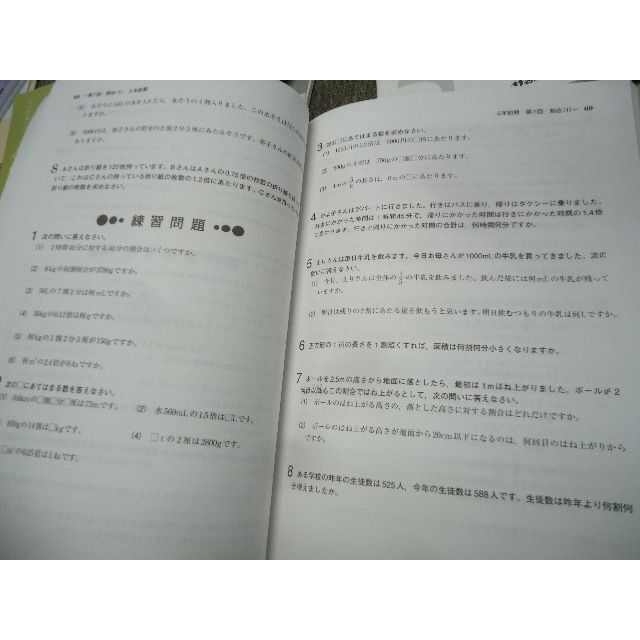 68 —第7回 割合(1) 5年前期
8 Aさんは折り紙を120枚持っています。BさんはAさんの0.75倍の枚数の折り紙を
いて、これはCさんの持っている折り紙の枚数の1.2倍にあたります。Cさんが
折り紙の枚数を求めなさい。
練習問題
1 次の問いに答えなさい。
(1) 2時間40分に対する40分の割合はいくつですか。
(2) 6kgの何割何分が3780gですか。
(3) 50Lの7割2分は何mLですか。
(4) 36kgの0.12倍は何gですか。
(5) 何kgの1割2分5厘が150gですか。
(6) 何m²の2.4倍が8.4aですか。
次の□にあてはまる数を答えなさい。
0.6kmの□割□分□厘は75mです。
(2) 水560mLの1.5倍は□Lです。
850gの14割は□kgです。
(4) □tの2厘は2800gです。
□m²の0.25倍は1.4aです。
5年前期 第7回 割合(1)— 69
3 次の□にあてはまる数を求めなさい。
(1) 1250円の□倍は、5000円の□倍にあたります。
(2) 500gの3倍は、750gの□割□分にあたります。
の長さは、6mの□にあたります。
子さんはデパートに行きました。行きはバスに乗り、帰りはタクシーに乗りました。
行きにかかった時間は1時間45分で、帰りにかかった時間は行きにかかった時間の1.4倍
にあたります。行きと帰りにかかった時間の合計は、何時間何分ですか。
5 えりさんは毎日牛乳を飲みます。今日お母さんが1000mLの牛乳を買ってきました。次の
問いに答えなさい。
(1) 今日、えりさんは全体の1/5の牛乳を飲みました。飲んだ後には何mLの牛乳が残って
いますか。
(2) 明日は残りの2割にあたる量を飲もうと思います。明日飲むつもりの牛乳は何Lですか。
6 正方形の1辺の長さを1割短くすれば、面積は何割何分小さくなりますか。
7 ボールを2.5mの高さから地面に落としたら、最初は1mはね上がりました。ボールが2
回目以後もこの割合ではね上がるとして、次の問いに答えなさい。
(1) ボールのはね上がる高さの、落とした高さに対する割合はどれだけですか。
(2) ボールのはね上がる高さが地面から20cm以下になるのは、何回目のはね上がりから
ですか。
8 ある学校の昨年の生徒数は525人、今年の生徒数は588人です。生徒数は昨年より何割何
分増えましたか。